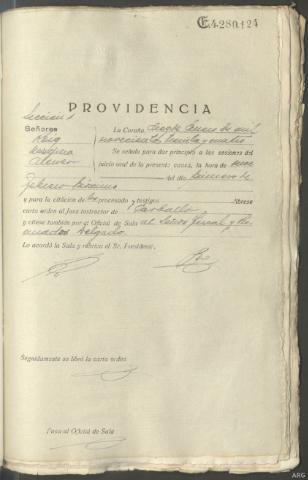 E.4.280.124
PROVIDENCIA
Sección 1
Señores
La Coruña trece Enero de mil
novecientos treinta y cuatro
Alonso
Se señala para dar principio a las sesiones del
juicio oral de la presente causa, la hora de once
del día primero de
Febrero próximo
y para la citación de procesado y testigos líbrese
carta orden al Juez instructor de Carballo
y cítese también por el Oficial de Sala al Señor Fiscal y
Delgado.
Lo acordó la Sala y rubrica el Sr. Presidente.
Seguidamente se libró la carta orden
Pasa al Oficial de Sala
ARG